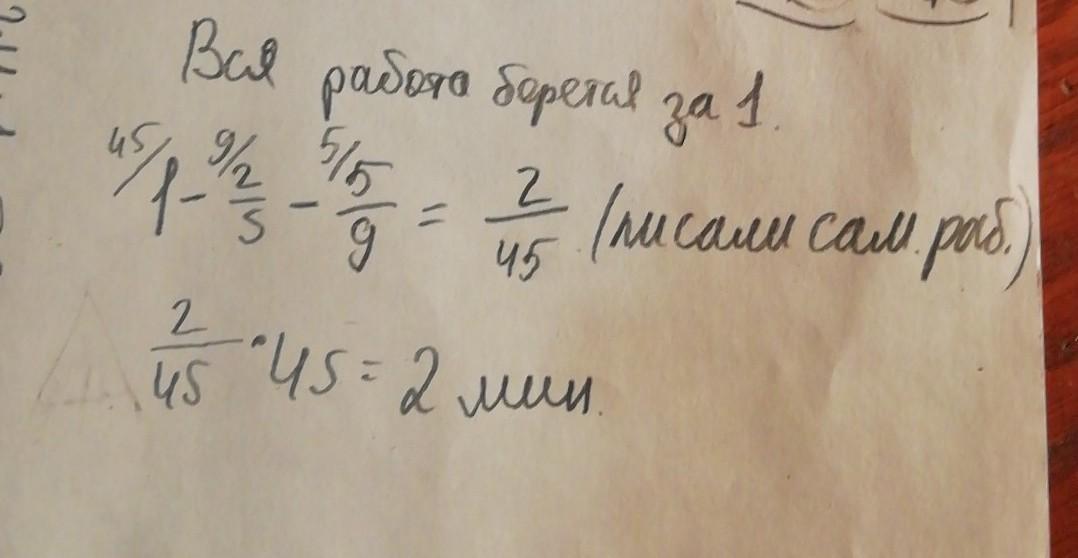 Вся работа берется за 1.
45/1 - 9/2/5 - 5/5/9 = 2/45 (писали сам. раб.)
2/45 · 45 = 2 мин.